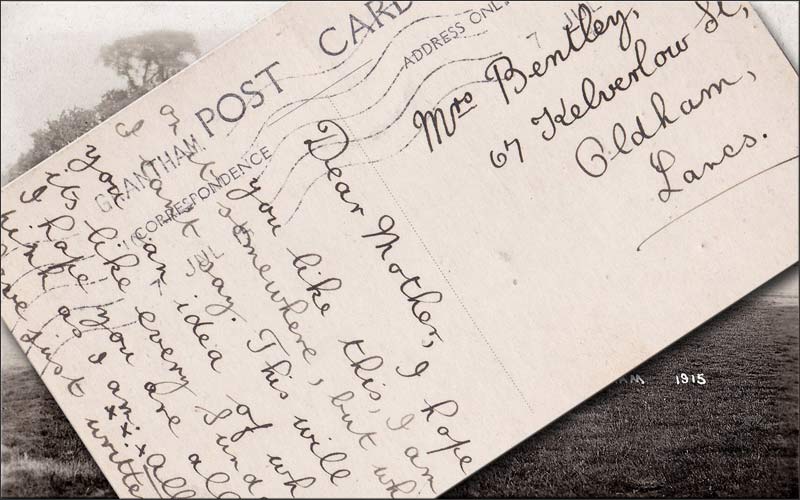 POST CARD
ADDRESS ONLY
7 JUL
GRANTHAM
CORRESPONDENCE
JUL
Mrs Bentley,
67 Kelverlow St,
Oldham,
Lancs.
Dear Mother, I hope
you like this, I am
on it somewhere, but wh
cant say. This will
you an idea of wh
its like every Sund
I hope you are all
hink as I am. x x x All
ave just writte
AM 1915